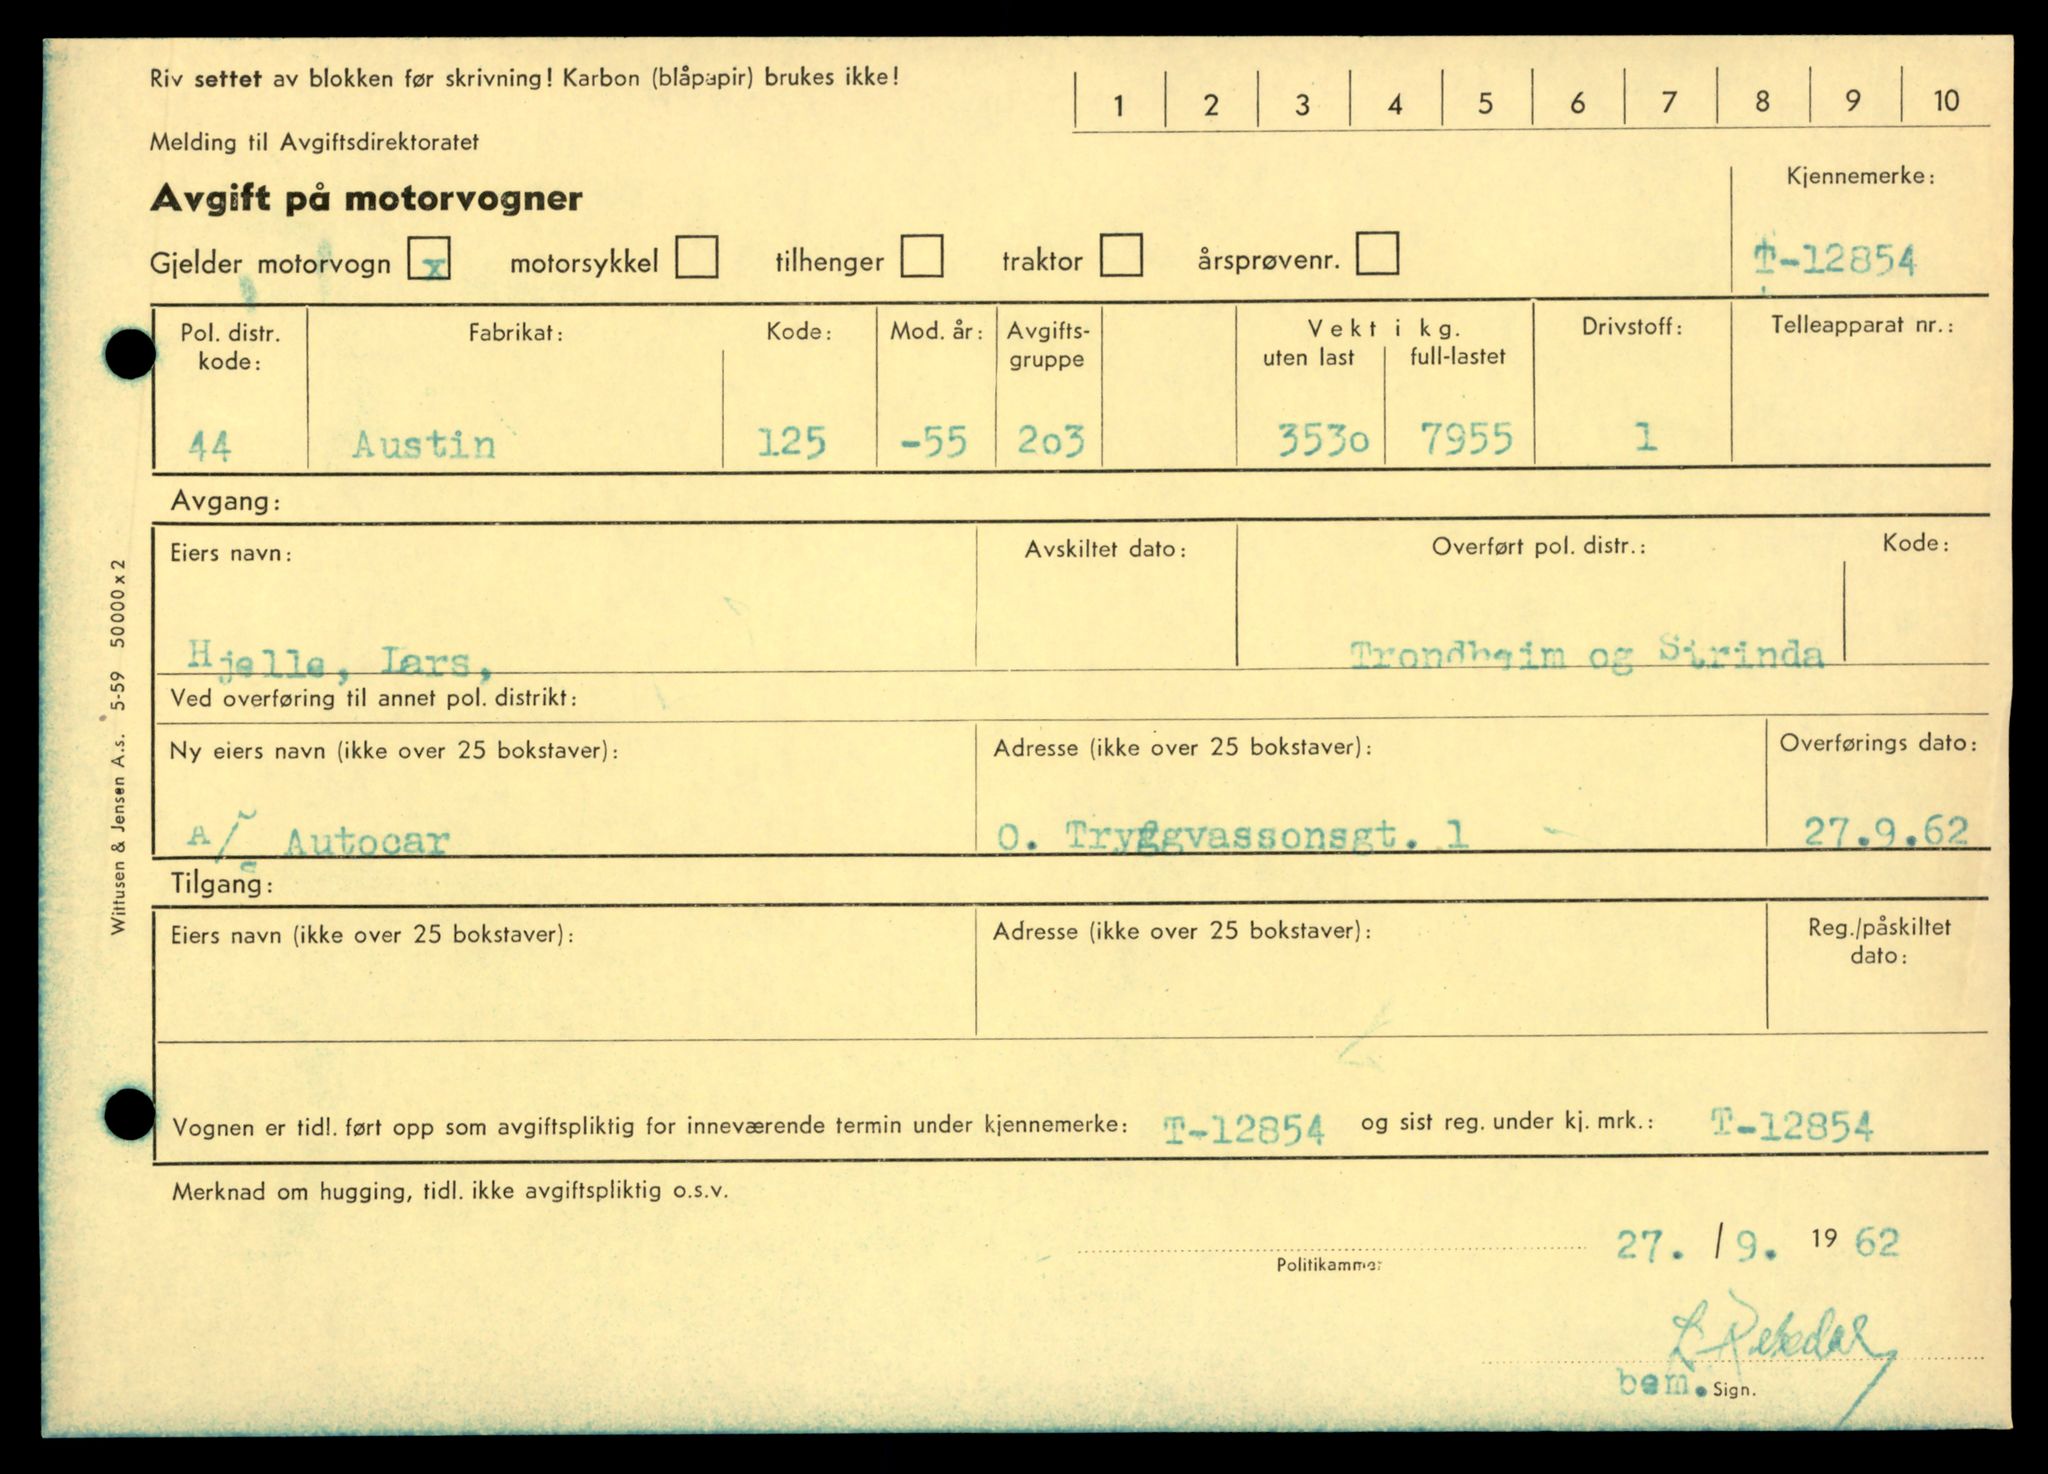 Riv settet av blokken før skrivning! Karbon (blåpapir) brukes ikke!
1 2 3 4 5 6 7 8 9 10
Melding til Avgiftsdirektoratet
Avgift på motorvogner
Kjennemerke:
Gjelder motorvogn x motorsykkel tilhenger traktor årsprøvenr.
T-12854
Pol. distr. kode: Fabrikat: Kode: Mod. år: Avgifts-gruppe Vekt i kg. uten last full-lastet Drivstoff: Telleapparat nr.:
44 Austin 125 -55 2o3 353o 7955 1
Avgang:
Eiers navn: Avskiltet dato: Overført pol. distr.: Kode:
Hjelle, Lars, Trondheim og Strinda
Ved overføring til annet pol. distrikt:
Ny eiers navn (ikke over 25 bokstaver): Adresse (ikke over 25 bokstaver): Overførings dato:
A/s Autocar O. Tryggvassonsgt. 1 27.9.62
Tilgang:
Eiers navn (ikke over 25 bokstaver): Adresse (ikke over 25 bokstaver): Reg./påskiltet dato:
Vognen er tidl. ført opp som avgiftspliktig for inneværende termin under kjennemerke: T-12854 og sist reg. under kj. mrk.: T-12854
Merknad om hugging, tidl. ikke avgiftspliktig o.s.v.
27. / 9. 19 62
Politikammer
bem. Sign.
Wittusen & Jensen A.s. 5-59 50000 x 2